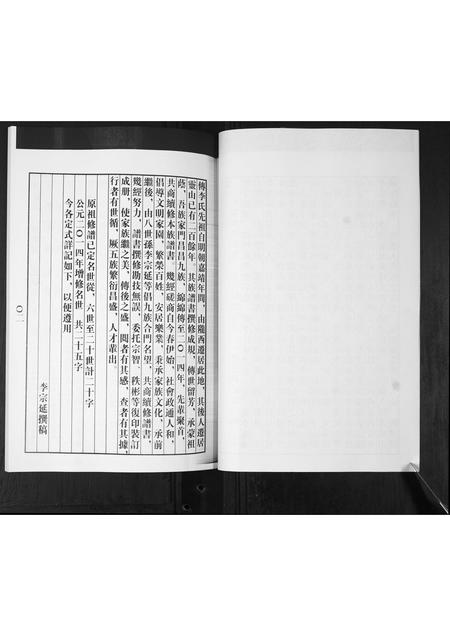 傳李氏先祖自明朝嘉靖年間，由隴西遷居此地，其後人遷居
靈山已有二百餘年，其族譜書撰修成規，傳世留芳、承蒙祖
蔭，吾族家門昌昌九族，綿綿傳至二〇一四年，先輩聚首，
共商續修本族譜書。幾經磋商自今春伊始，社會政通人和，
倡導文明家園，繁榮百姓，安居樂業，秉承家族文化，承前
繼後，由八世孫李宗延等倡九族合門名望，共商續修譜書，
幾經努力，譜書撰修勘技無誤，委托宗智、秩彬等復印裝訂
成册，使家族繼之美，傳後之盛，閱者有其感，查者有其據，
行者有世循，厥五族繁衍昌盛，人才輩出。
原祖修譜已定名世從，六世至二十世計二十字
公元二〇一四年增修名世 共二十五字
今各定式詳記如下，以便遵用
李宗延撰稿
〇二